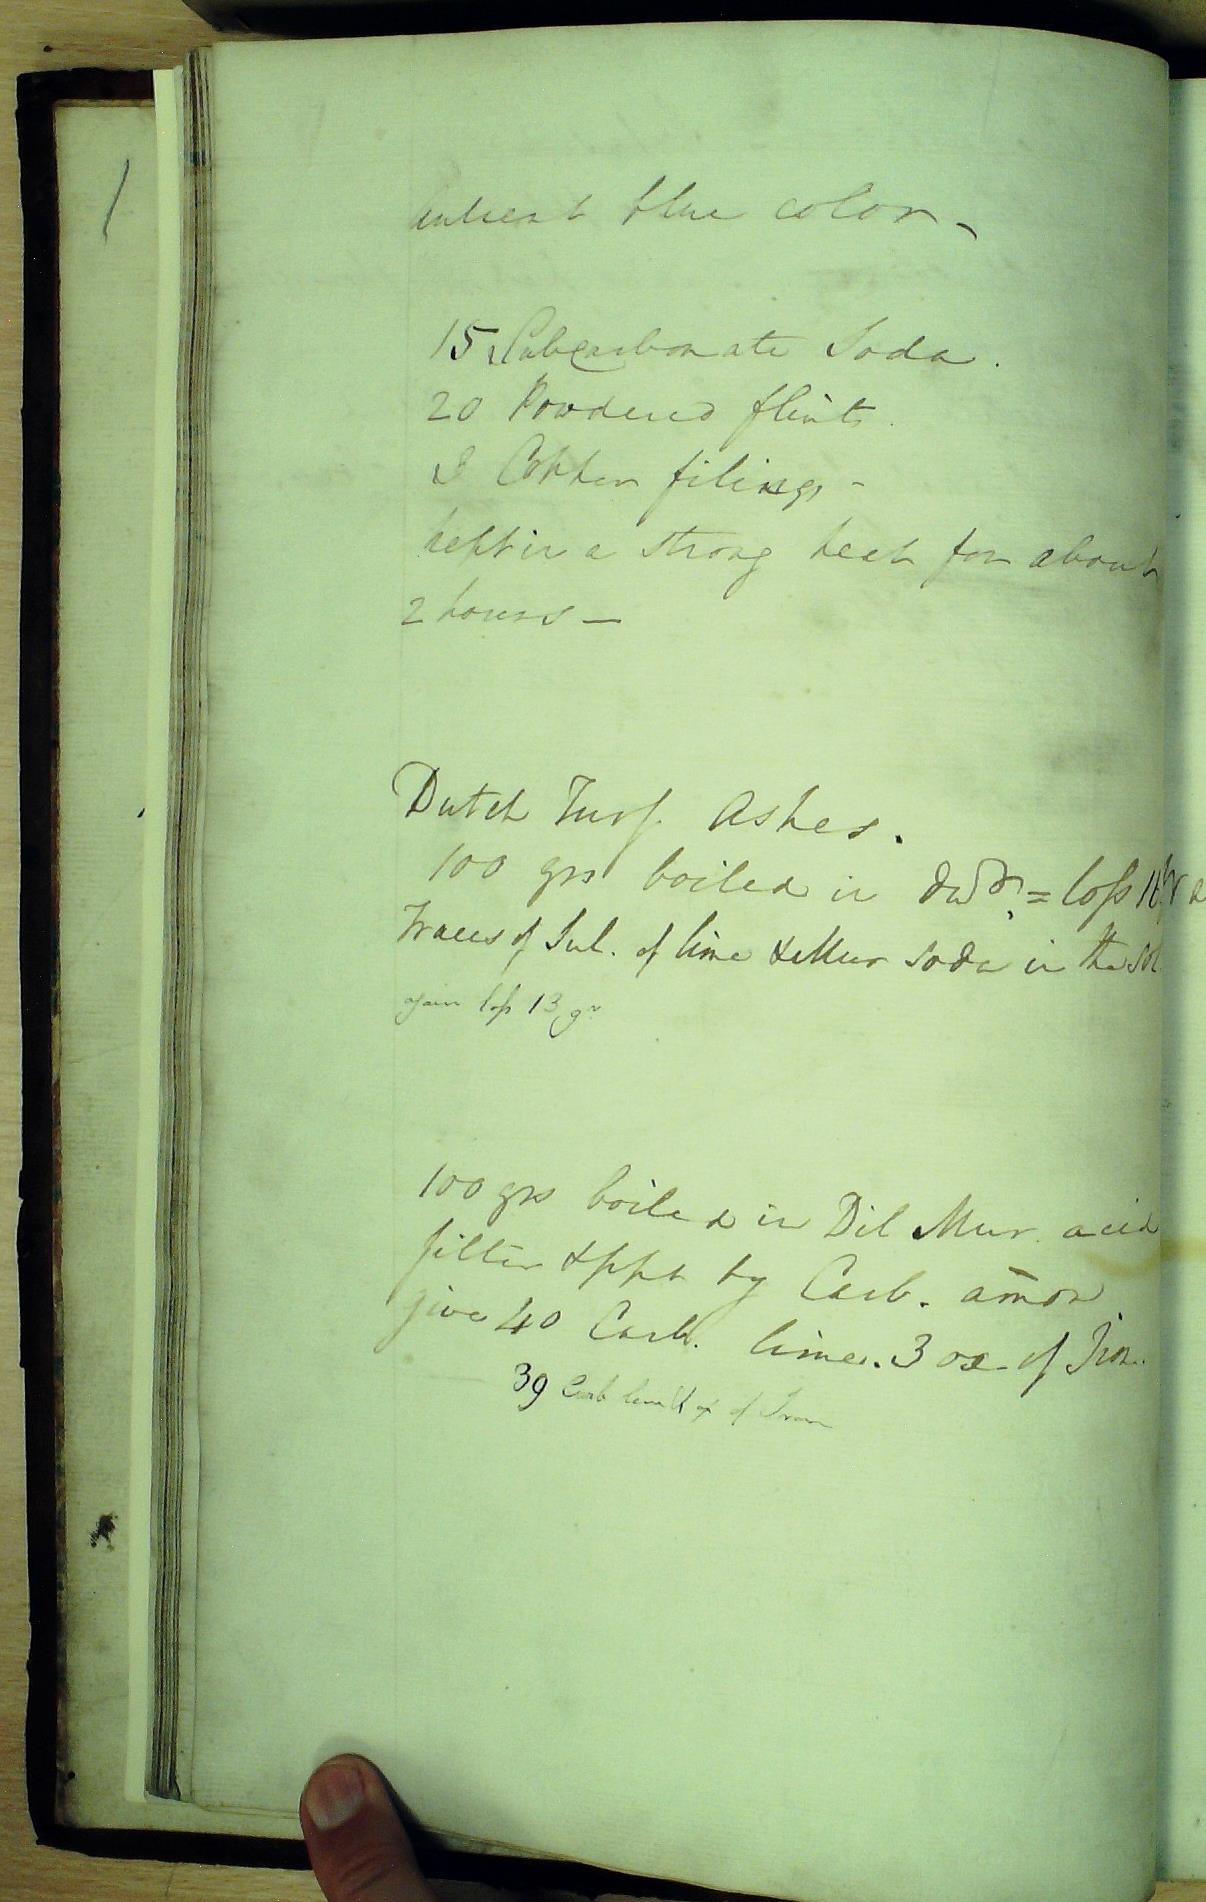 antient blue color -
15 Subcarbonate Soda .
20 Powdered flints .
3 Copper filings -
kept in a strong heat for about
2 hours —
Dutch Turf Ashes .
100 grs boiled in = loss
Traces of Sul. of lime & Mur soda in the
again loss 13 gr
100 grs boiled in Dil Mur. acid
filter & ppt by Carb. amon
give 40 Carb. lime . 3 ox of Iron .
39 Carb lime ox of Iron